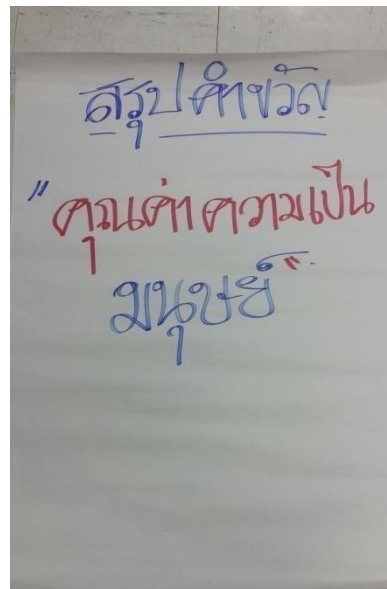 สรุปคำขวัญ
"คุณค่าความเป็น
มนุษย์"